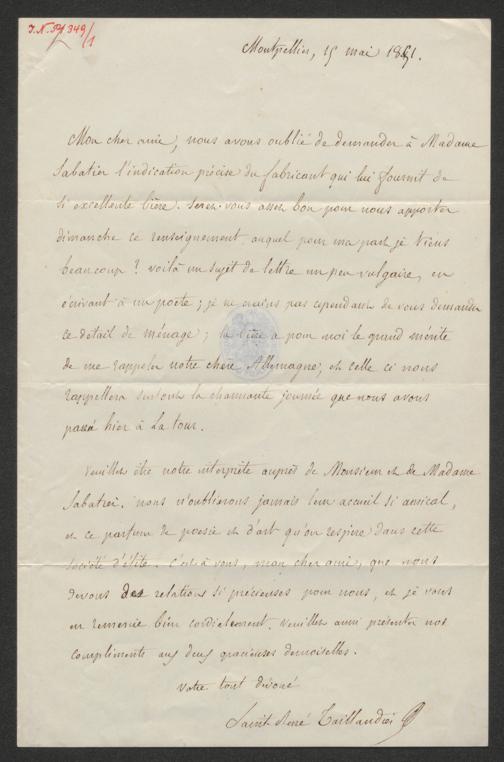 J.N. 34349/1
Montpellier, 15 mai 1851.
Mon cher ami, nous avons oublié de demander à Madame
Sabatier l'indication précise du fabricant qui lui fournit de
si excellente bière. Serez-vous assez bon pour nous apporter
dimanche ce renseignement, auquel pour ma part je tiens
beaucoup ? voilà un sujet de lettre un peu vulgaire, en
écrivant à un poète ; je ne crains pas cependant de vous demander
ce détail de ménage ; la bière a pour moi le grand mérite
de me rappeler notre chère Allemagne, et celle ci nous
rappellera surtout la charmante journée que nous avons
passé hier à La tour.
Veuillez être notre interprète auprès de Monsieur et de Madame
Sabatier. nous n'oublierons jamais leur accueil si amical,
et ce parfum de poésie et d'art qu'on respire dans cette
société d'élite. C'est à vous, mon cher ami, que nous
devons des relations si précieuses pour nous, et je vous
en remercie bien cordialement. Veuillez aussi présenter nos
compliments aux deux gracieuses demoiselles.
Votre tout dévoué
Saint-René Taillandier